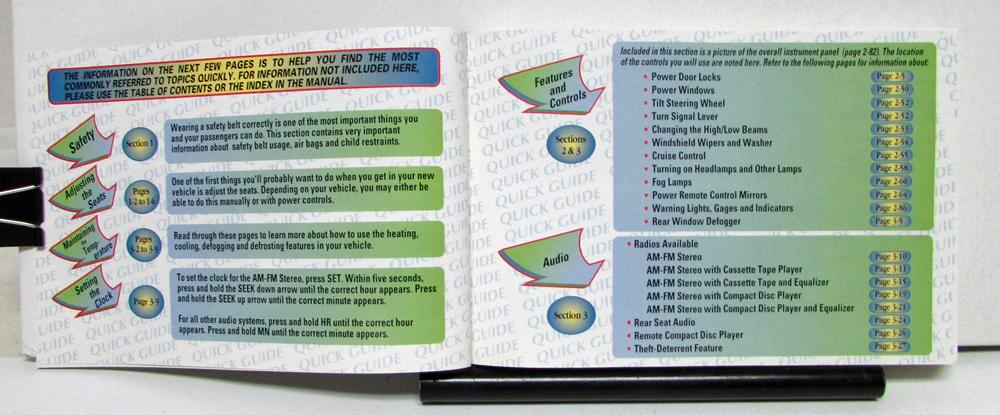 THE INFORMATION ON THE NEXT FEW PAGES IS TO HELP YOU FIND THE MOST
COMMONLY REFERRED TO TOPICS QUICKLY. FOR INFORMATION NOT INCLUDED HERE,
PLEASE USE THE TABLE OF CONTENTS OR THE INDEX IN THE MANUAL.
Safety
Section 1
Wearing a safety belt correctly is one of the most important things you
and your passengers can do. This section contains very important
information about safety belt usage, air bags and child restraints.
Adjusting
the
Seats
Pages
1-2 to 1-6
One of the first things you'll probably want to do when you get in your new
vehicle is adjust the seats. Depending on your vehicle, you may either be
able to do this manually or with power controls.
Maintaining
the
Temp-
erature
Pages
3-2 to 3-9
Read through these pages to learn more about how to use the heating,
cooling, defogging and defrosting features in your vehicle.
Setting
the
Clock
Page 3-9
To set the clock for the AM-FM Stereo, press SET. Within five seconds,
press and hold the SEEK down arrow until the correct hour appears. Press
and hold the SEEK up arrow until the correct minute appears.
For all other audio systems, press and hold HR until the correct hour
appears. Press and hold MN until the correct minute appears.
Features
and
Controls
Sections
2 & 3
Included in this section is a picture of the overall instrument panel (page 2-82). The location
of the controls you will use are noted here. Refer to the following pages for information about:
• Power Door Locks Page 2-5
• Power Windows Page 2-50
• Tilt Steering Wheel Page 2-52
• Turn Signal Lever Page 2-52
• Changing the High/Low Beams Page 2-53
• Windshield Wipers and Washer Page 2-54
• Cruise Control Page 2-55
• Turning on Headlamps and Other Lamps Page 2-58
• Fog Lamps Page 2-60
• Power Remote Control Mirrors Page 2-64
• Warning Lights, Gages and Indicators Page 2-86
• Rear Window Defogger Page 3-5
Audio
Section 3
• Radios Available
AM-FM Stereo Page 3-10
AM-FM Stereo with Cassette Tape Player Page 3-11
AM-FM Stereo with Cassette Tape and Equalizer Page 3-15
AM-FM Stereo with Compact Disc Player Page 3-19
AM-FM Stereo with Compact Disc Player and Equalizer Page 3-21
• Rear Seat Audio Page 3-24
• Remote Compact Disc Player Page 3-26
• Theft-Deterrent Feature Page 3-27